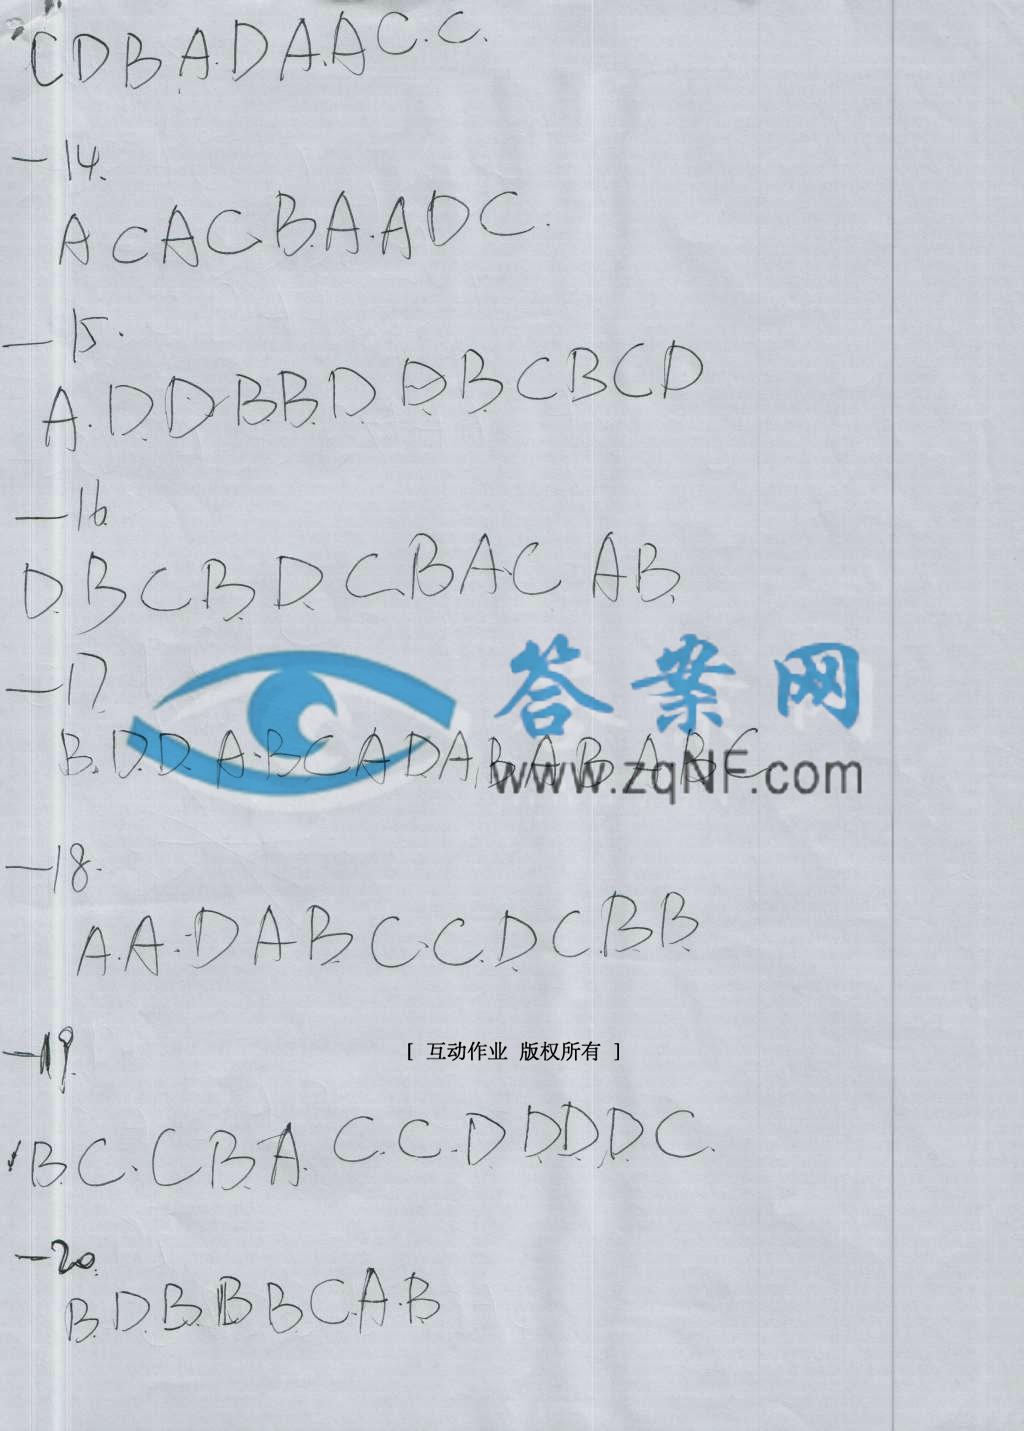 CDBA.DA.AC.C.
—14.
ACACB.A.ADC.
—15.
A.D.D.B.B.D.D.B.CBCD
—16
D.BCB.D.C.BA.C AB.
—17.
答案网
B.D.D.A.BCADA,BABABC
www.zqNF.com
—18.
A.A.DABC.C.D.C.B.B.
—19.
[ 互动作业 版权所有 ]
BC.CB.A.C.C.DD.D,D.C.
—20.
B.D.B.BBC.A.B